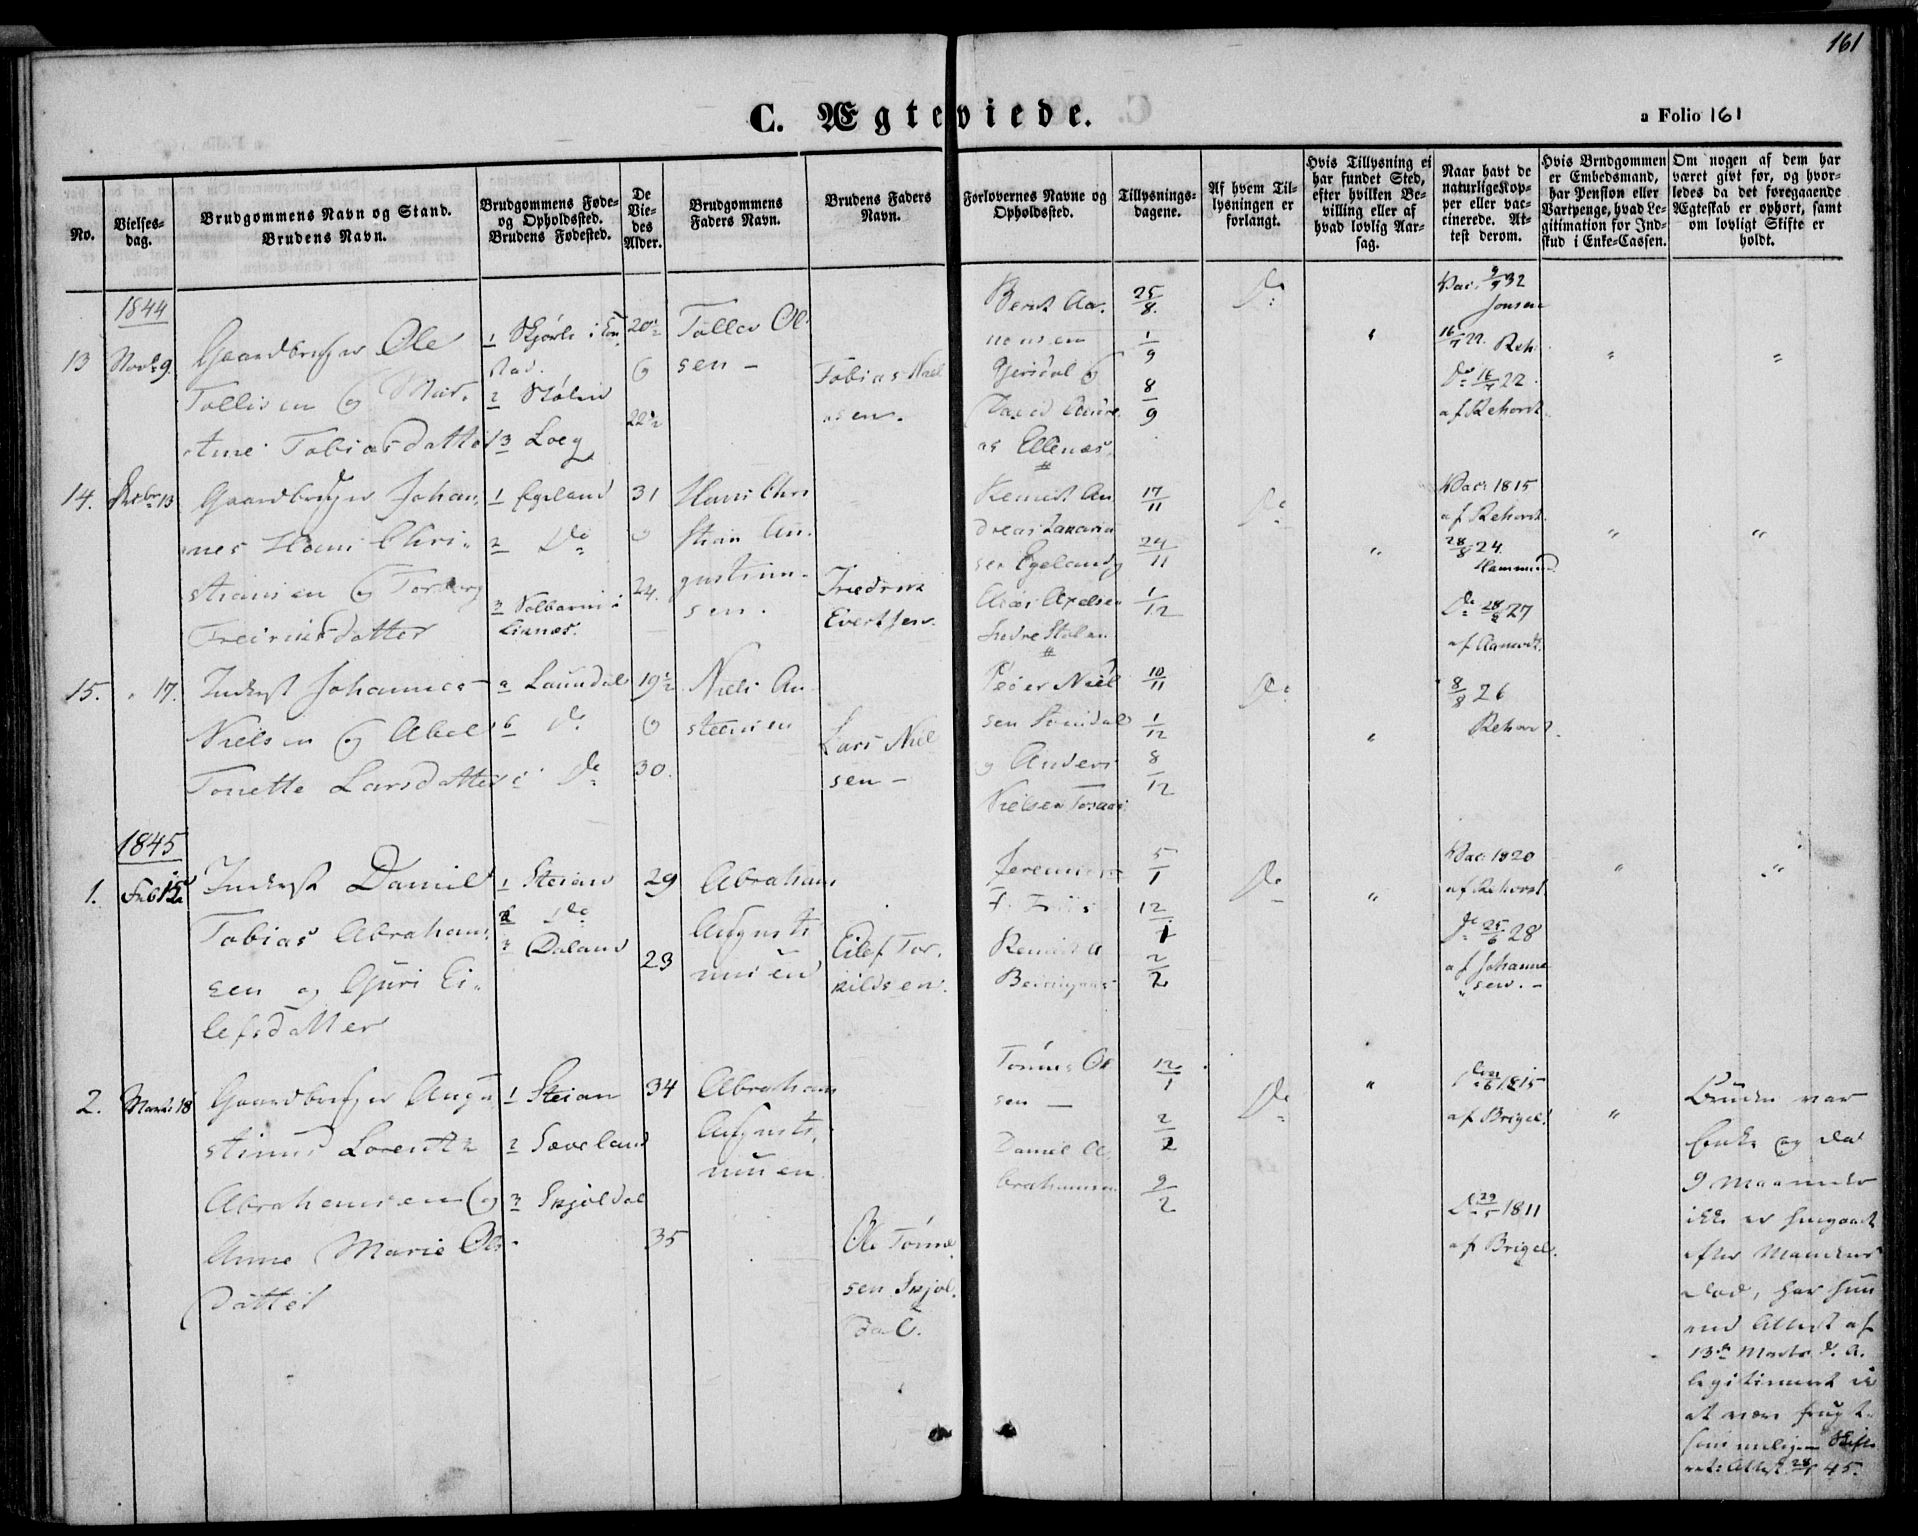 161
C. Ægteviede.
a Folio 161
No.
Vielses-
dag.
Brudgommens Navn og Stand.
Brudens Navn.
Brudgommens Føde-
og Opholdssted.
Brudens Fødested.
De
Vie-
des
Alder.
Brudgommens
Faders Navn.
Brudens Faders
Navn.
Forlovernes Navne og
Opholdssted.
Tillysnings-
dagene.
Af hvem Til-
lysningen er
forlangt.
Hvis Tillysning ei
har fundet Sted,
efter hvilken Be-
villing eller af
hvad lovlig Aar-
sag.
Naar havt de
naturlige Kop-
per eller vac-
cinerede. At-
test derom.
Hvis Brudgommen
er Embedsmand,
har Pension eller
Vartpenge, hvad Le-
gitimation for Ind-
skud i Enke-Cassen.
Om nogen af dem har
været gift før, og hvor-
ledes da det foregaaende
Ægteskab er ophørt, samt
om lovligt Skifte er
holdt.
1844
13
Novb 9.
Gaardbruger Ole
Tollisen og Mar-
Tobiasdatter
2 Stølen
3 Loeg
20½
22½
Tallev Ol
sen -
Tobias Niel
sen.
Bernt Aa.
nonsen
Gjersdal og
David Andre
as Ellenæs,
25/8.
1/9
8/9
Do
Vac. 9/9 32
Jonsen
16/7 22. Reh.
Do 16/7 22.
af Rehorst.
14.
Decbr 13
Gaardbruger Johan-
nes Hans Chri-
stiansen og Torborg
datter
1 Egeland
2 Do
3
31
24.
Hans Chri
stian Au-
gustinu-
sen.
Fredrik
Evertsen.
An
dreas Zakaria
sen Egeland og
Axelsen
Indre Stølen
17/11
24/11
1/12
Do
Vac 1815
af Rehorst.
28/8 24.
Hammund
Do 28/8 27
15.
" 17.
Inderst Johannes
Nielsen og Abel
Tonette Larsdatter
a Laundal
b Do
c Do
19½
30.
Niels An-
steensen
Lars Niel
sen -
Peder Niel
sen
og Anders
Nielsen
10/11
1/12
8/12
Do
8/8 26
Rehorst.
1845
1.
Inderst Daniel
Tobias Abraham-
sen og Guri Ei-
lefsdatter
1 Steian
2 Do
3 Daland
29
23
Abraham
Augusti
nusen
Eilef Tor-
kildsen.
Jeremias
F. Friis
Reinert
5/1
12/1
2/2
Do
Vac 1820
af Rehorst
Do 25/6 28
af Johanne
sen. -
2.
Marts 18
Gaardbruger Augu
stinus Lorentz
Abrahamsen og
Anne Marie Ols
datter
1 Steian
2 Søveland
3 Skjoldal
34
35
Abraham
Augusti,
nusen
Ole Tønne
sen Skjol.
dal.
Tønnes Ol
sen -
Daniel A
brahamsen
12/1
2/2
9/2
Do
1815
af Brigel.
1811
af Brigel.
Bruden var
Enke og da
9 Maaneder
ikke er hengaaet
efter Mandens
død, har hun
ved Attest af
13de Marts d. A.
legitimeret ei
at være frugt-
sommelig.
Attest 28/1 45.